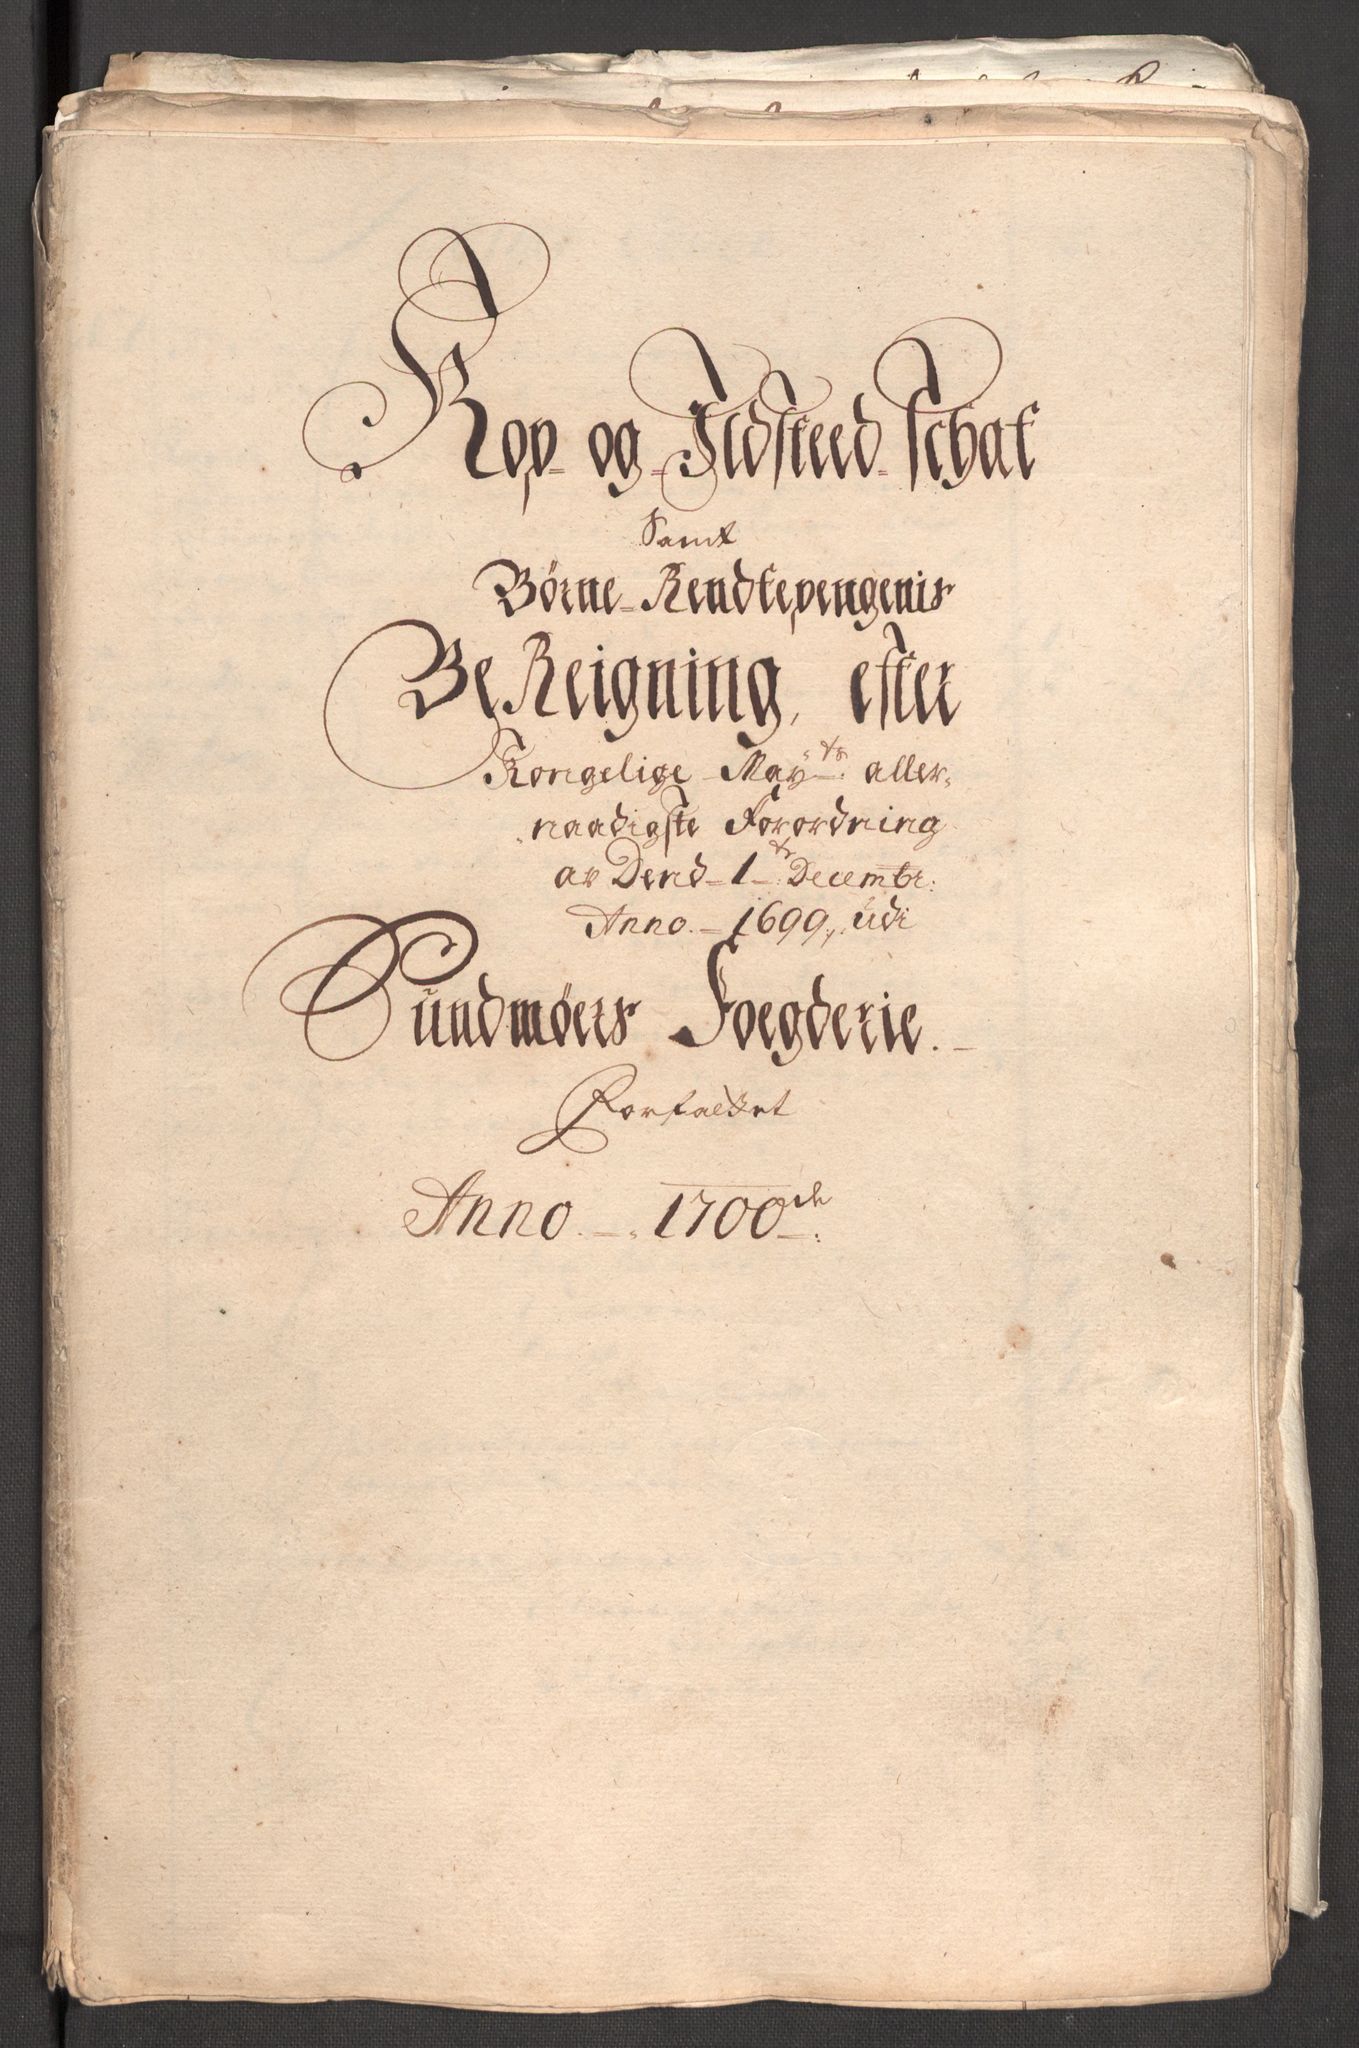 Kop- og- Ildsteed- schat
Samt
Børne- Rendtepengenis
BeReigning, efter
Kongelige May.ts: aller-
naadigste Forordning
av Dend- 1te: Decembr:
Anno. - 1699, udi
Sundmøers Foegderie. -
Forfattet
Anno. - 1700de: